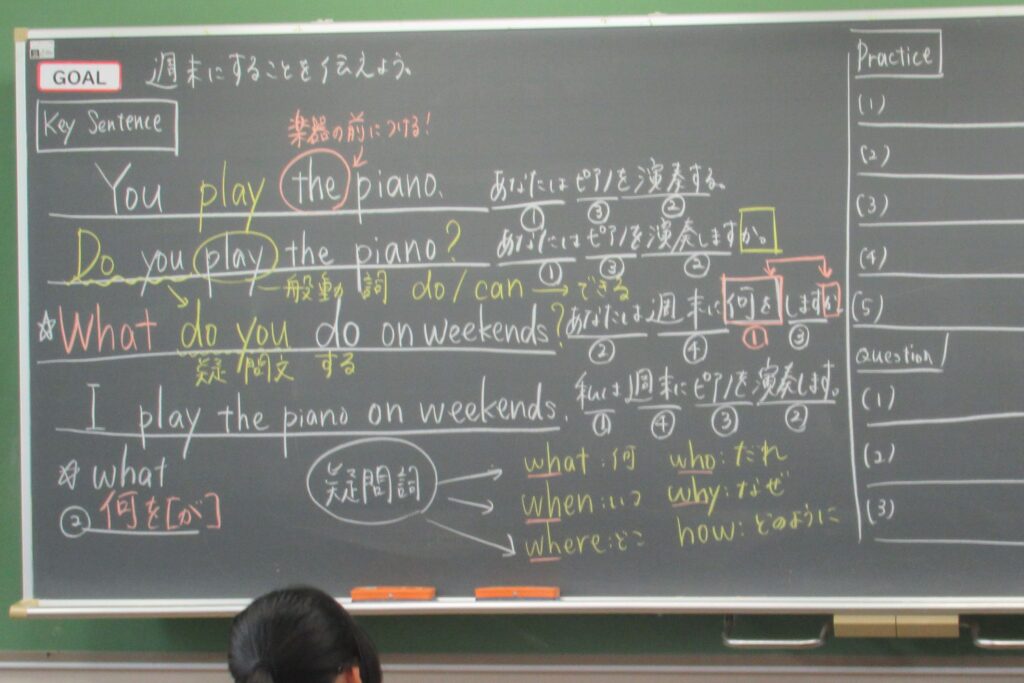 GOAL 週末にすることを伝えよう。
Key Sentence
楽器の前につける!
You play the piano. あなたはピアノを演奏する。
① ③ ②
Do you play the piano? あなたはピアノを演奏しますか。
① ③ ②
一般動詞 do/can → できる
☆What do you do on weekends? あなたは週末に何をしますか
② ④ ① ③
疑問文 する
I play the piano on weekends. 私は週末にピアノを演奏します。
① ④ ③ ②
☆ what
② 何を[が]
疑問詞
what:何 who:だれ
when:いつ why:なぜ
where:どこ how:どのように
Practice
(1)
(2)
(3)
(4)
(5)
Question
(1)
(2)
(3)